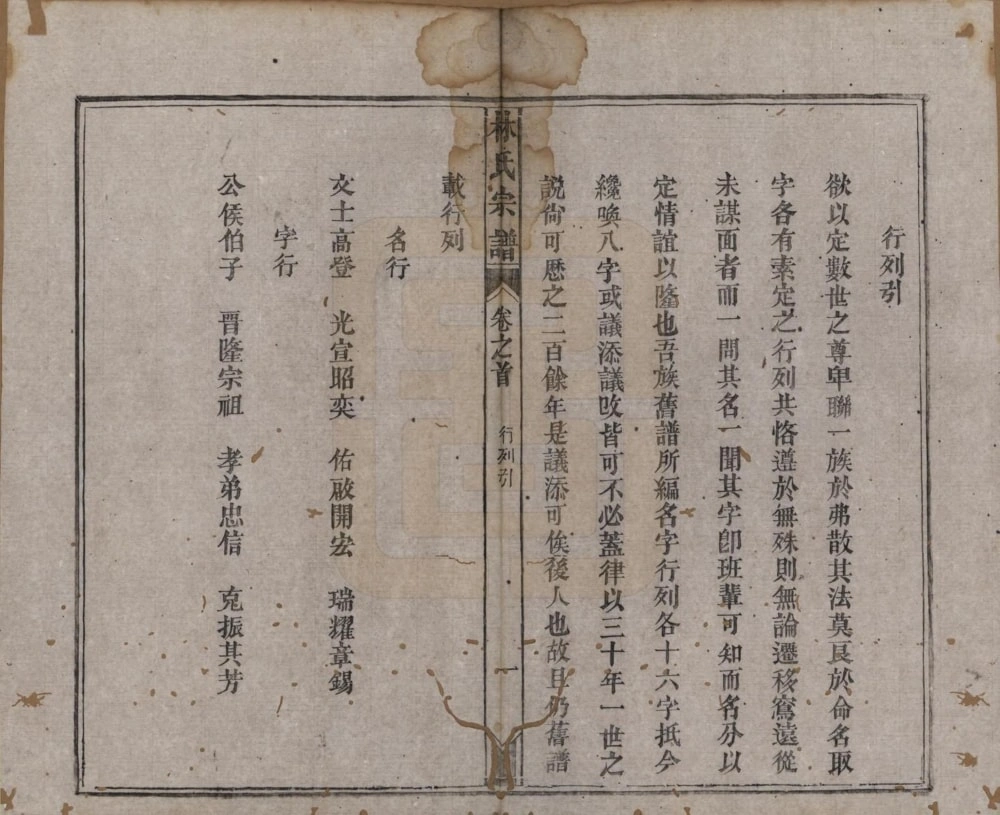 行列引
欲以定數世之尊卑聯一族於弗散其法莫良於命名取
字各有素定之行列共恪遵於無殊則無論遷移窵遠從
未謀面者而一問其名一聞其字卽班輩可知而名分以
定情誼以隆也吾族舊譜所編名字行列各十六字抵今
纔喚八字或議添議改皆可不必蓋律以三十年一世之
說尙可歷之二百餘年是議添可俟後人也故且仍舊譜
林氏宗譜 卷之首 行列引 一
載行列
名行
文士高登 光宣昭奕 佑啟開宏 瑞耀章錫
字行
公侯伯子 晋隆宗祖 孝弟忠信 克振其芳